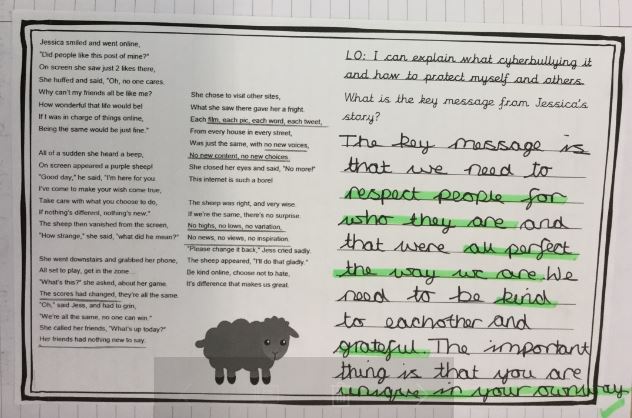 Jessica smiled and went online,
"Did people like this post of mine?"
On screen she saw just 2 likes there,
She huffed and said, "Oh, no one cares.
Why can't my friends all be like me?
How wonderful that life would be!
If I was in charge of things online,
Being the same would be just fine."
All of a sudden she heard a beep,
On screen appeared a purple sheep!
"Good day," he said, "I'm here for you
I've come to make your wish come true,
Take care with what you choose to do,
If nothing's different, nothing's new."
The sheep then vanished from the screen,
"How strange," she said, "what did he mean?"
She went downstairs and grabbed her phone,
All set to play, get in the zone...
"What's this?" she asked, about her game.
The scores had changed, they're all the same.
"Oh," said Jess, and had to grin,
"We're all the same, no one can win."
She called her friends, "What's up today?"
Her friends had nothing new to say.
She chose to visit other sites,
What she saw there gave her a fright.
Each film, each pic, each word, each tweet,
From every house in every street,
Was just the same, with no new voices,
No new content, no new choices.
She closed her eyes and said, "No more!"
This internet is such a bore!
The sheep was right, and very wise.
If we're the same, there's no surprise.
No highs, no lows, no variation,
No news, no views, no inspiration.
"Please change it back," Jess cried sadly.
The sheep appeared, "I'll do that gladly."
Be kind online, choose not to hate,
It's difference that makes us great.
LO: I can explain what cyberbullying it
and how to protect myself and others.
What is the key message from Jessica's
story?
The key message is
that we need to
respect people for
who they are and
that were all perfect
the way we are. We
need to be kind
to eachother and
grateful. The important
thing is that you are
unique in your own way